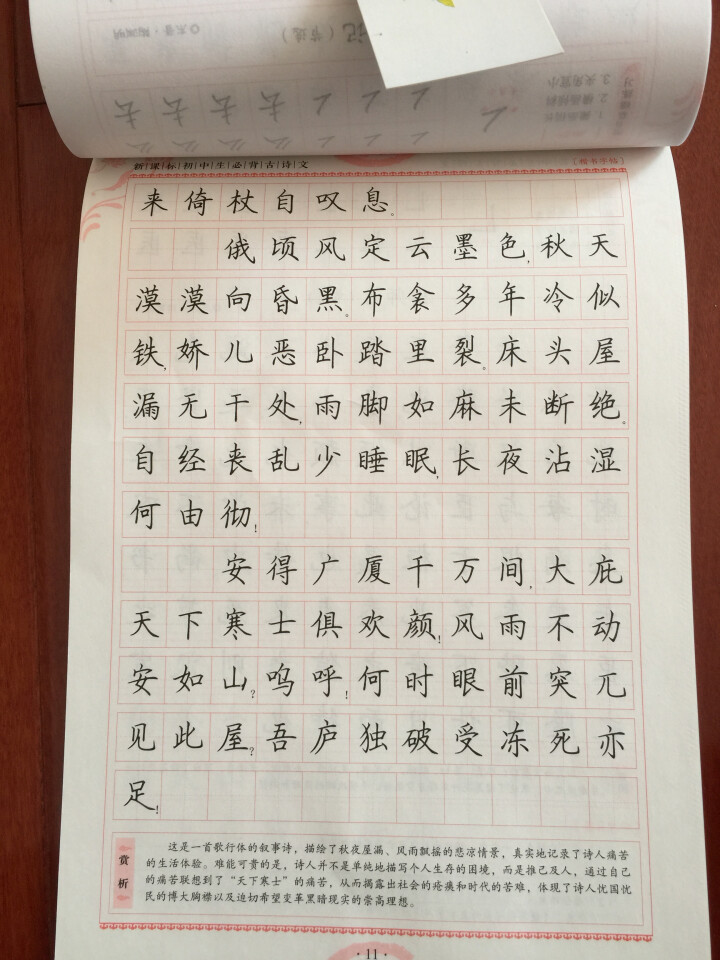 新课标初中生必背古诗文 [楷书字帖]
来倚杖自叹息。
俄顷风定云墨色,秋天
漠漠向昏黑。布衾多年冷似
铁,娇儿恶卧踏里裂。床头屋
漏无干处,雨脚如麻未断绝。
自经丧乱少睡眠,长夜沾湿
何由彻!
安得广厦千万间,大庇
天下寒士俱欢颜!风雨不动
安如山?呜呼!何时眼前突兀
见此屋?吾庐独破受冻死亦
足!
赏析
这是一首歌行体的叙事诗，描绘了秋夜屋漏、风雨飘摇的悲凉情景，真实地记录了诗人痛苦
的生活体验。难能可贵的是，诗人并不是单纯地描写个人生存的困境，而是推己及人，通过自己
的痛苦联想到了“天下寒士”的痛苦，从而揭露出社会的疮痍和时代的苦难，体现了诗人忧国忧
民的博大胸襟以及迫切希望变革黑暗现实的崇高理想。
·11·